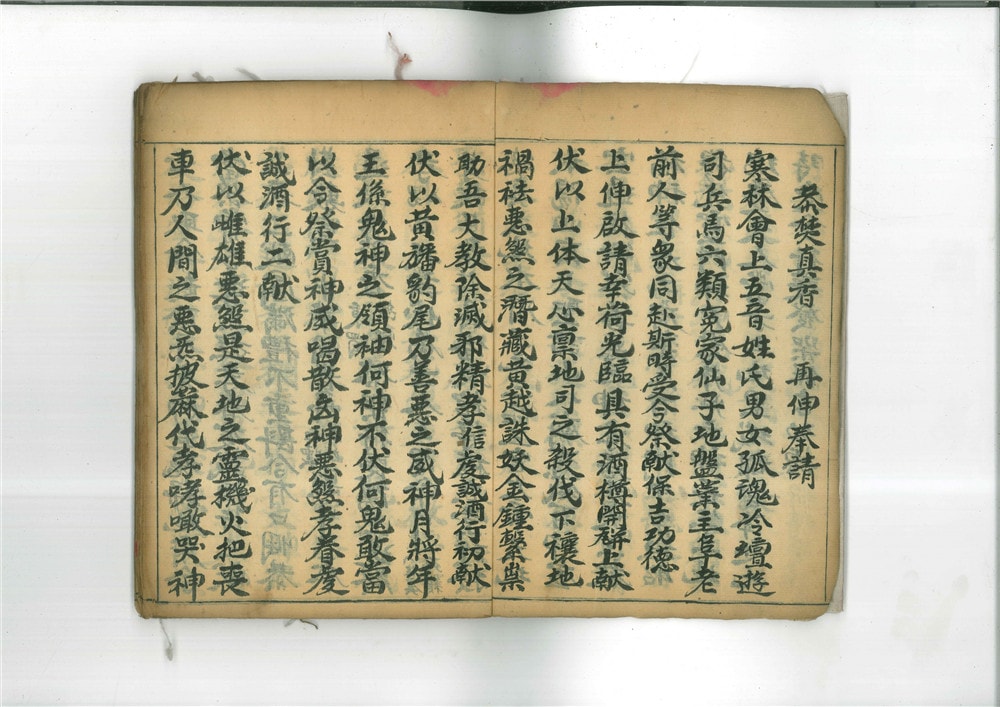 恭焚真香 再伸奉請
寒林會上五音姓氏男女孤魂冷壇遊
司兵馬六類冤家仙子地盤業主阜老
前人等衆同赴斯時受今祭献保吉功德
上伸啟請幸荷光臨具有酒樽開缾上献
伏以上体天心禀地司之殺伐下禳地
禍祛惡煞之潛藏黃越誅妖金鍾繫祟
助吾大教除滅邪精孝信虔誠酒行初献
伏以黃旛豹尾乃善惡之威神月將年
王係鬼神之領袖何神不伏何鬼敢當
以今祭賞神威喝散凶神惡煞孝眷虔
誠酒行二献
伏以雌雄惡煞是天地之靈機火把喪
車乃人間之惡炁披蔴代孝哮噉哭神